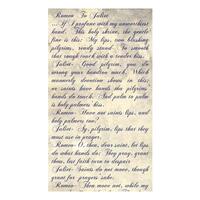 Romeo To Juliet
... If I profane with my unworthiest
hand This holy shrine, the gentle
fine is this: My lips, two blushing
pilgrims, ready stand To smooth
that rough touch with a tender kiss.
Juliet- Good pilgrim, you do
wrong your hand too much, Which
mannerly devotion shows in this;
For saints have hands that pilgrims'
hands do touch, And palm to palm
is holy palmers' kiss.
Romeo- Have not saints lips, and
holy palmers too?
Juliet- Ay, pilgrim, lips that they
must use in prayer.
Romeo- O, then, dear saint, let lips
do what hands do; They pray, grant
thou, lest faith turn to despair
Juliet- Saints do not move, though
grant for prayers' sake.
Romeo- Then move not, while my